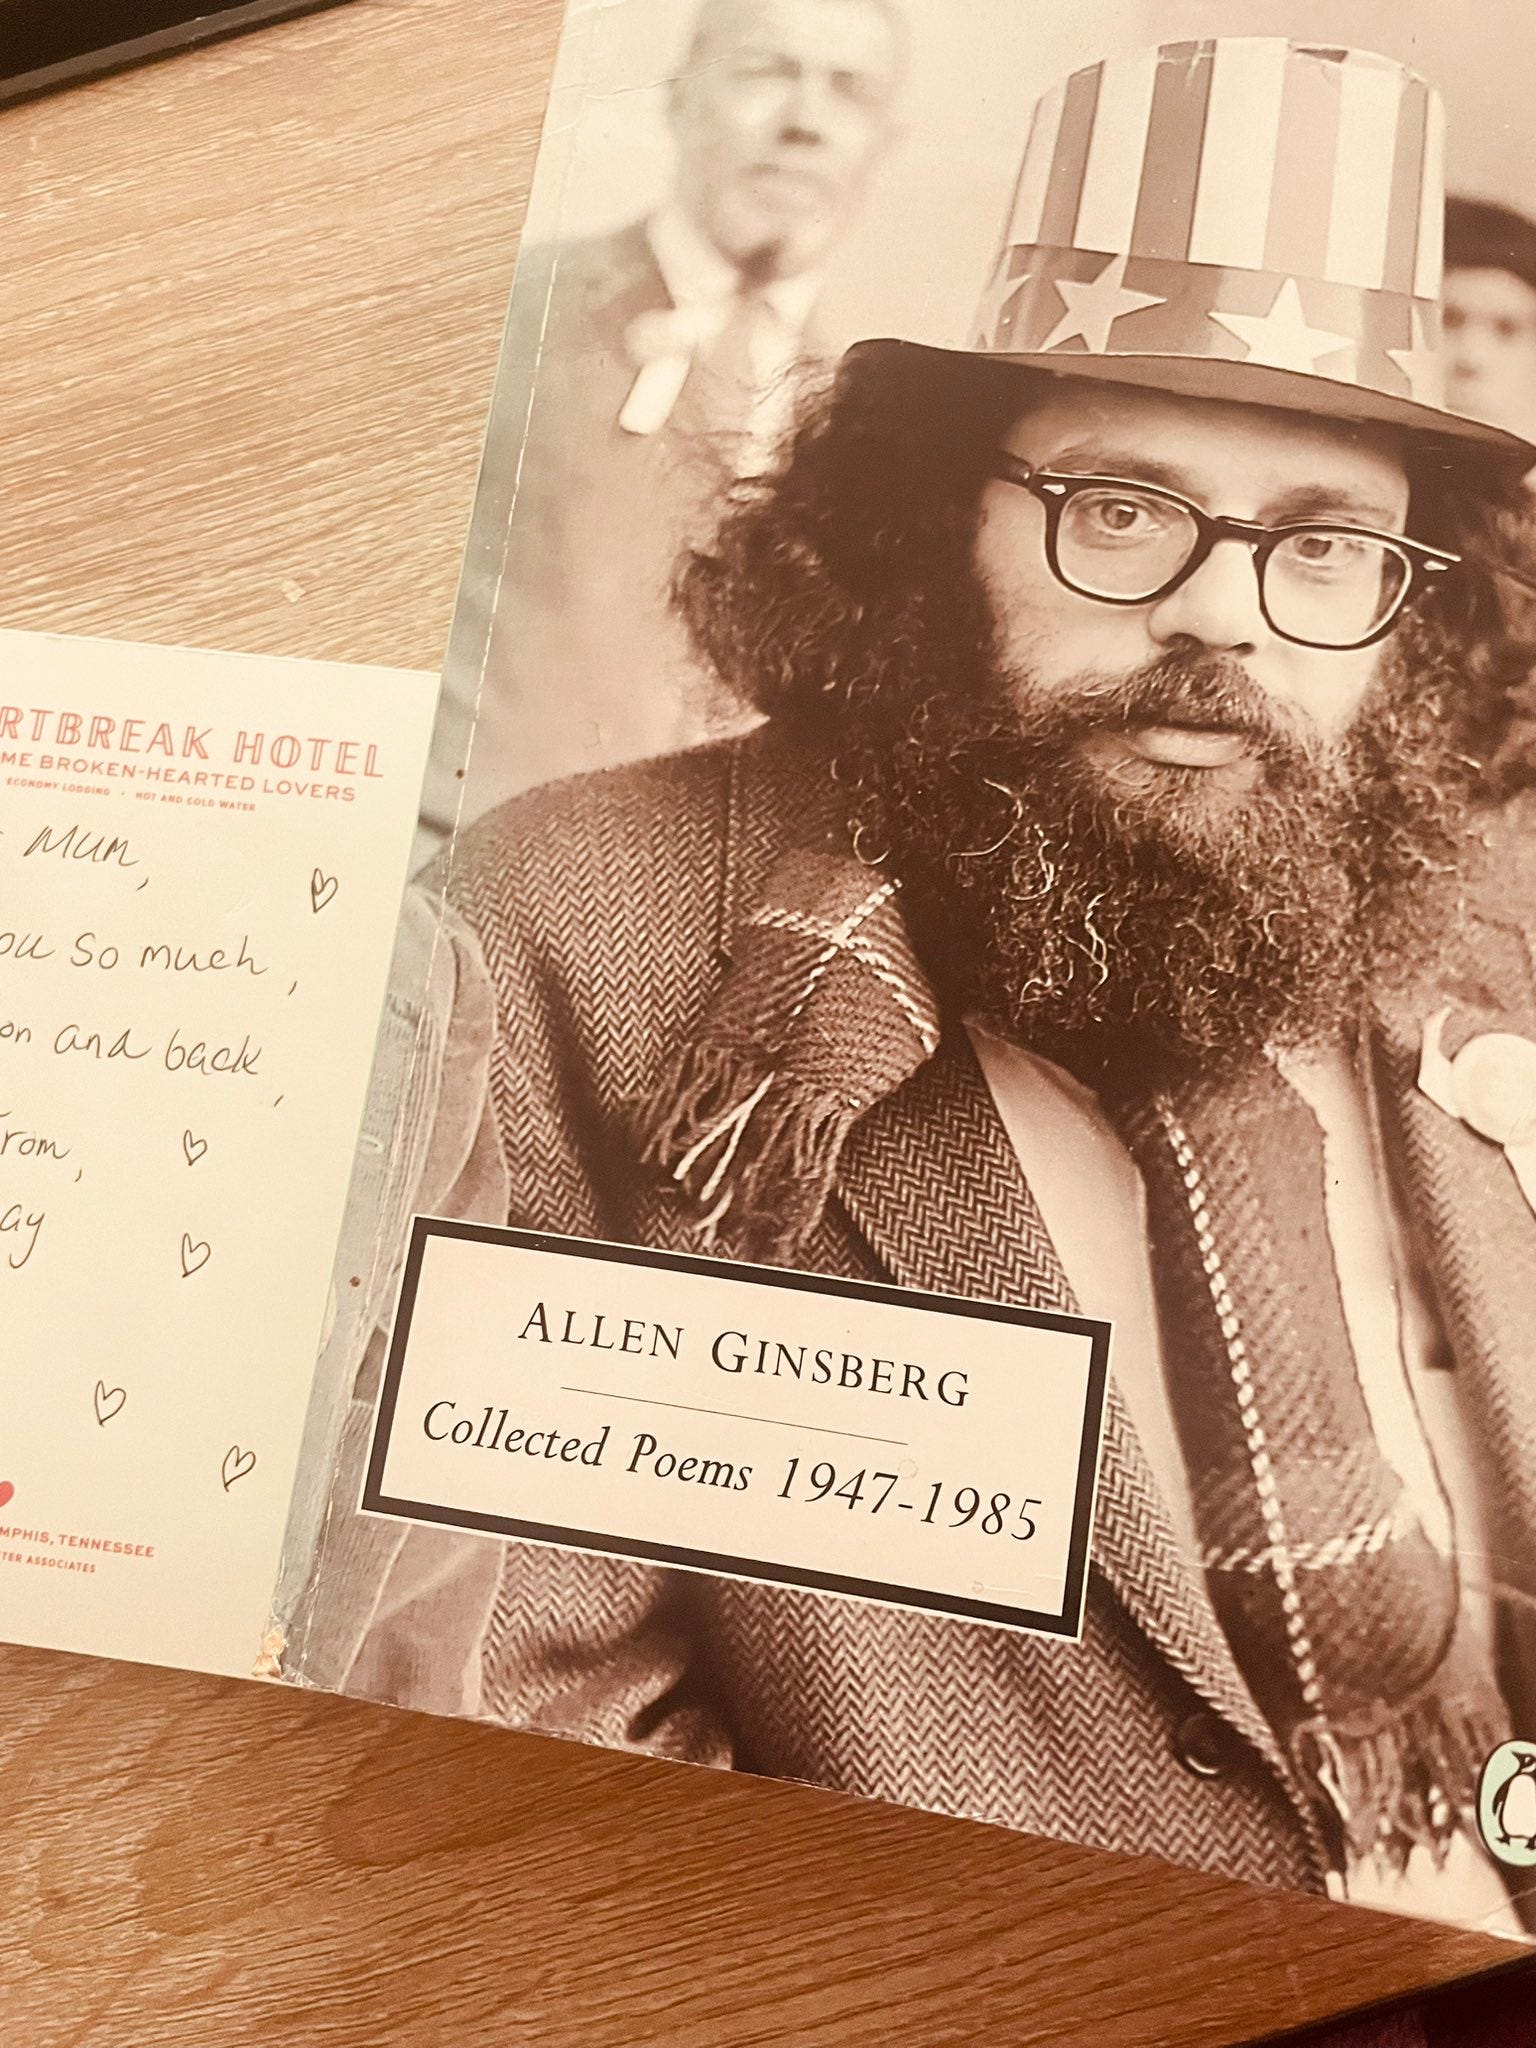 RTBREAK HOTEL
ME BROKEN-HEARTED LOVERS
ECONOMY LODGING · HOT AND COLD WATER
MUM,
ou so much,
on and back,
rom,
ay
MPHIS, TENNESSEE
TER ASSOCIATES
ALLEN GINSBERG
Collected Poems 1947-1985